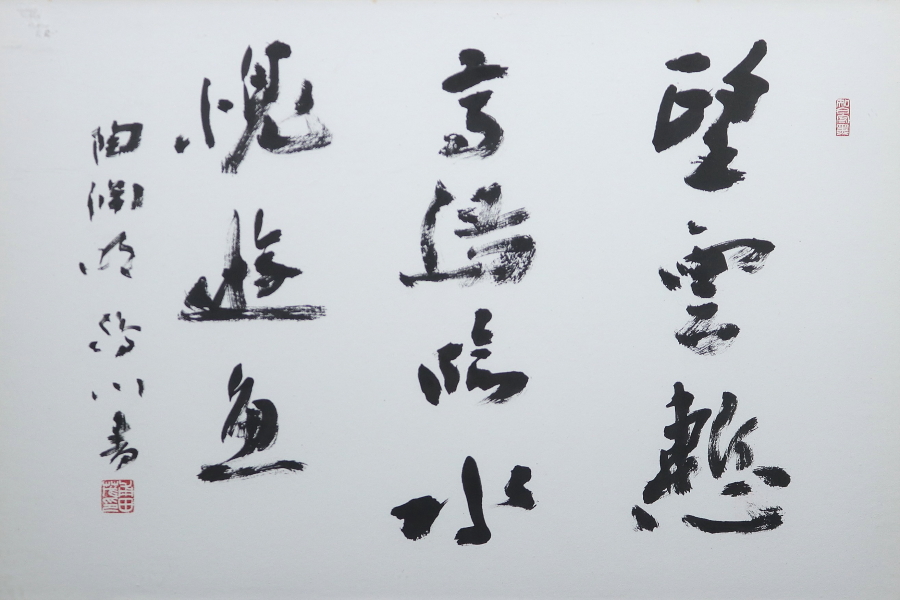 望雲慙
高鳥臨水
愧遊魚
陶淵明 川書